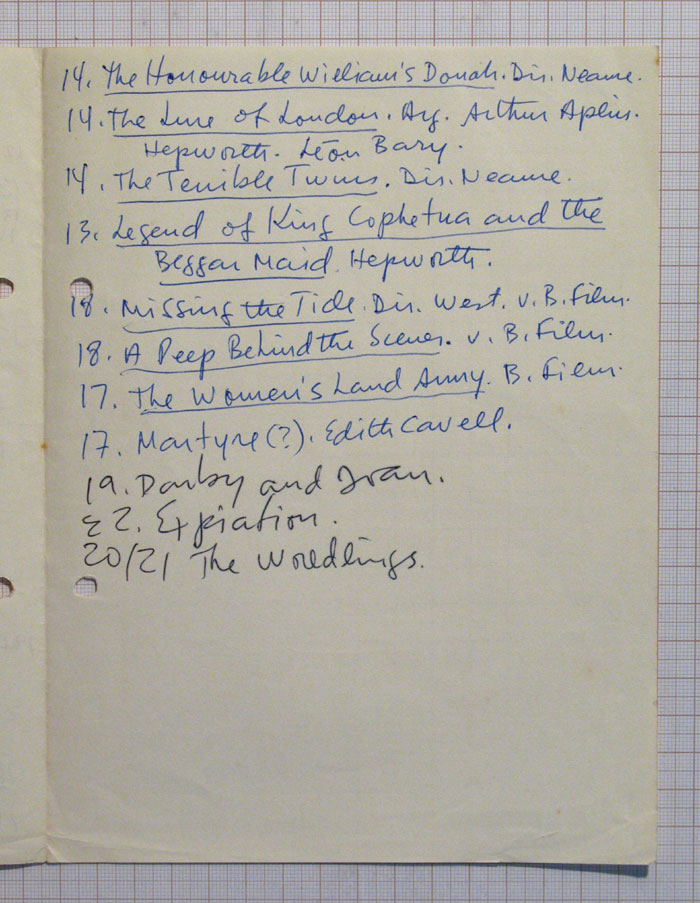 14. The Honourable William's Donah. Dir. Neame.
14. The Lure of London. Arg. Arthur Aplin.
Hepworth. Léon Bary.
14. The Terrible Twins. Dir. Neame.
13. Legend of King Cophetua and the
Beggar Maid. Hepworth.
18. Missing the Tide. Dir. West. v. B. Film.
18. A Peep Behind the Scenes. v. B. Film.
17. The Women's Land Army. B. Film.
17. Martyre (?). Edith Cavell.
19. Darby and Joan.
22. Expiation.
20/21 The Worldlings.